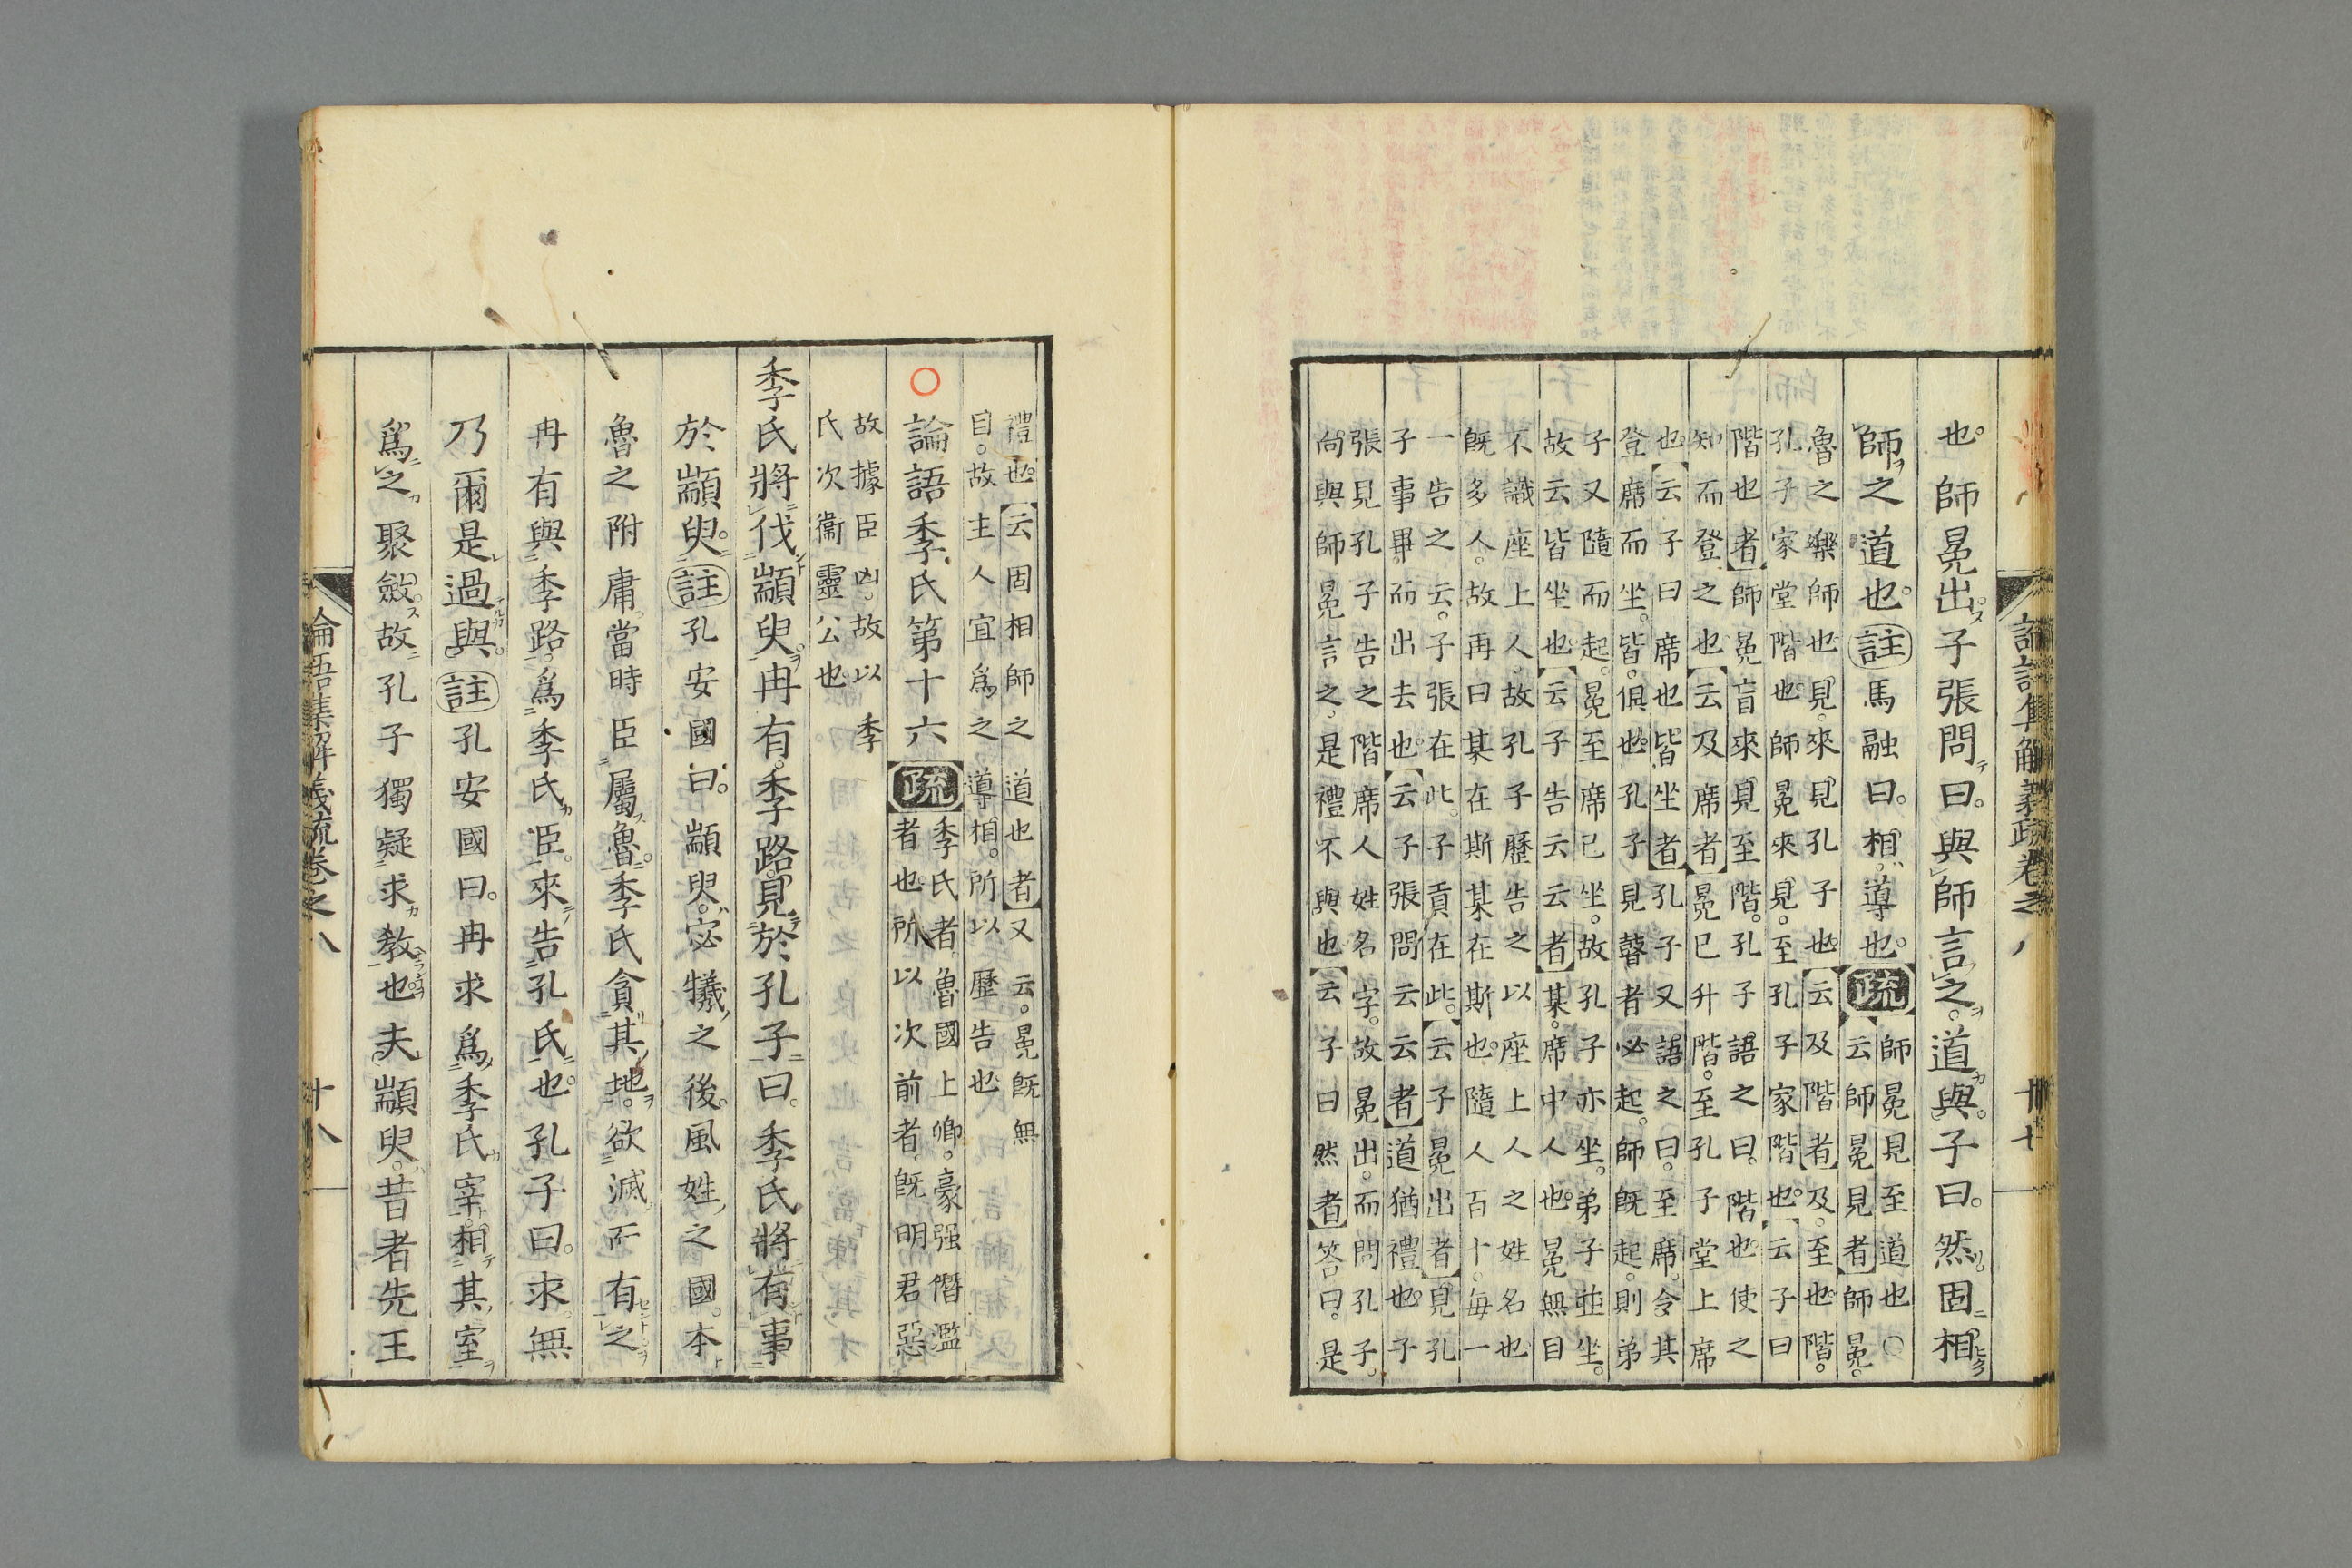 論語集解義疏卷之八 卅七
也。師冕出。子張問曰。與師言之。道與。子曰。然。固相
師之道也。註馬融曰。相。導也。疏
師冕見至道也○
云師冕見者師冕。
魯之樂師也。見。來見孔子也。云及階者及。至也。階。
孔子家堂階也。師冕來見。至孔子家階也。云子曰
階也者師冕盲來見至階。孔子語之曰。階也。使之
知而登之也。云及席者冕已升階。至孔子堂上席
也。云子曰席也皆坐者孔子又語之曰。至席。令其
登席而坐。皆。俱也。孔子見瞽者必起。師既起。則弟
子又隨而起。冕至席已坐。故孔子亦坐。弟子並坐。
故云皆坐也。云子告云云者某。席中人也。冕無目
不識座上人。故孔子歷告之以座上人之姓名也
既多人。故再曰某在斯某在斯也。隨人百十。每一
一告之云。子張在此。子貢在此。云子冕出者見孔
子事畢。而出去也。云子張問云云者道猶禮也。子
張見孔子告之階席人姓名字。故冕出。而問孔子。
尚與師冕言之。是禮不與也。云子曰然者答曰。是
禮也。云固相師之道也者又云。冕既無
目。故主人宜爲之導相。所以歷告也
論語季氏第十六 疏
季氏者。魯國上卿。豪强僭濫
者也。所以次前者。既明君惡
故據臣凶。故以季
氏次衞靈公也
季氏將伐顓臾。冉有。季路。見於孔子曰。季氏將有事
於顓臾。註孔安國曰。顓臾。宓犧之後。風姓之國。本
魯之附庸。當時臣屬魯。季氏貪其地。欲滅而有之
冉有與季路。爲季氏臣。來告孔氏也。孔子曰。求無
乃爾是過與。註孔安國曰。冉求爲季氏宰。相其室
爲之聚斂。故孔子獨疑求教也夫顓臾。昔者先王
論語集解義疏卷之八 卅八